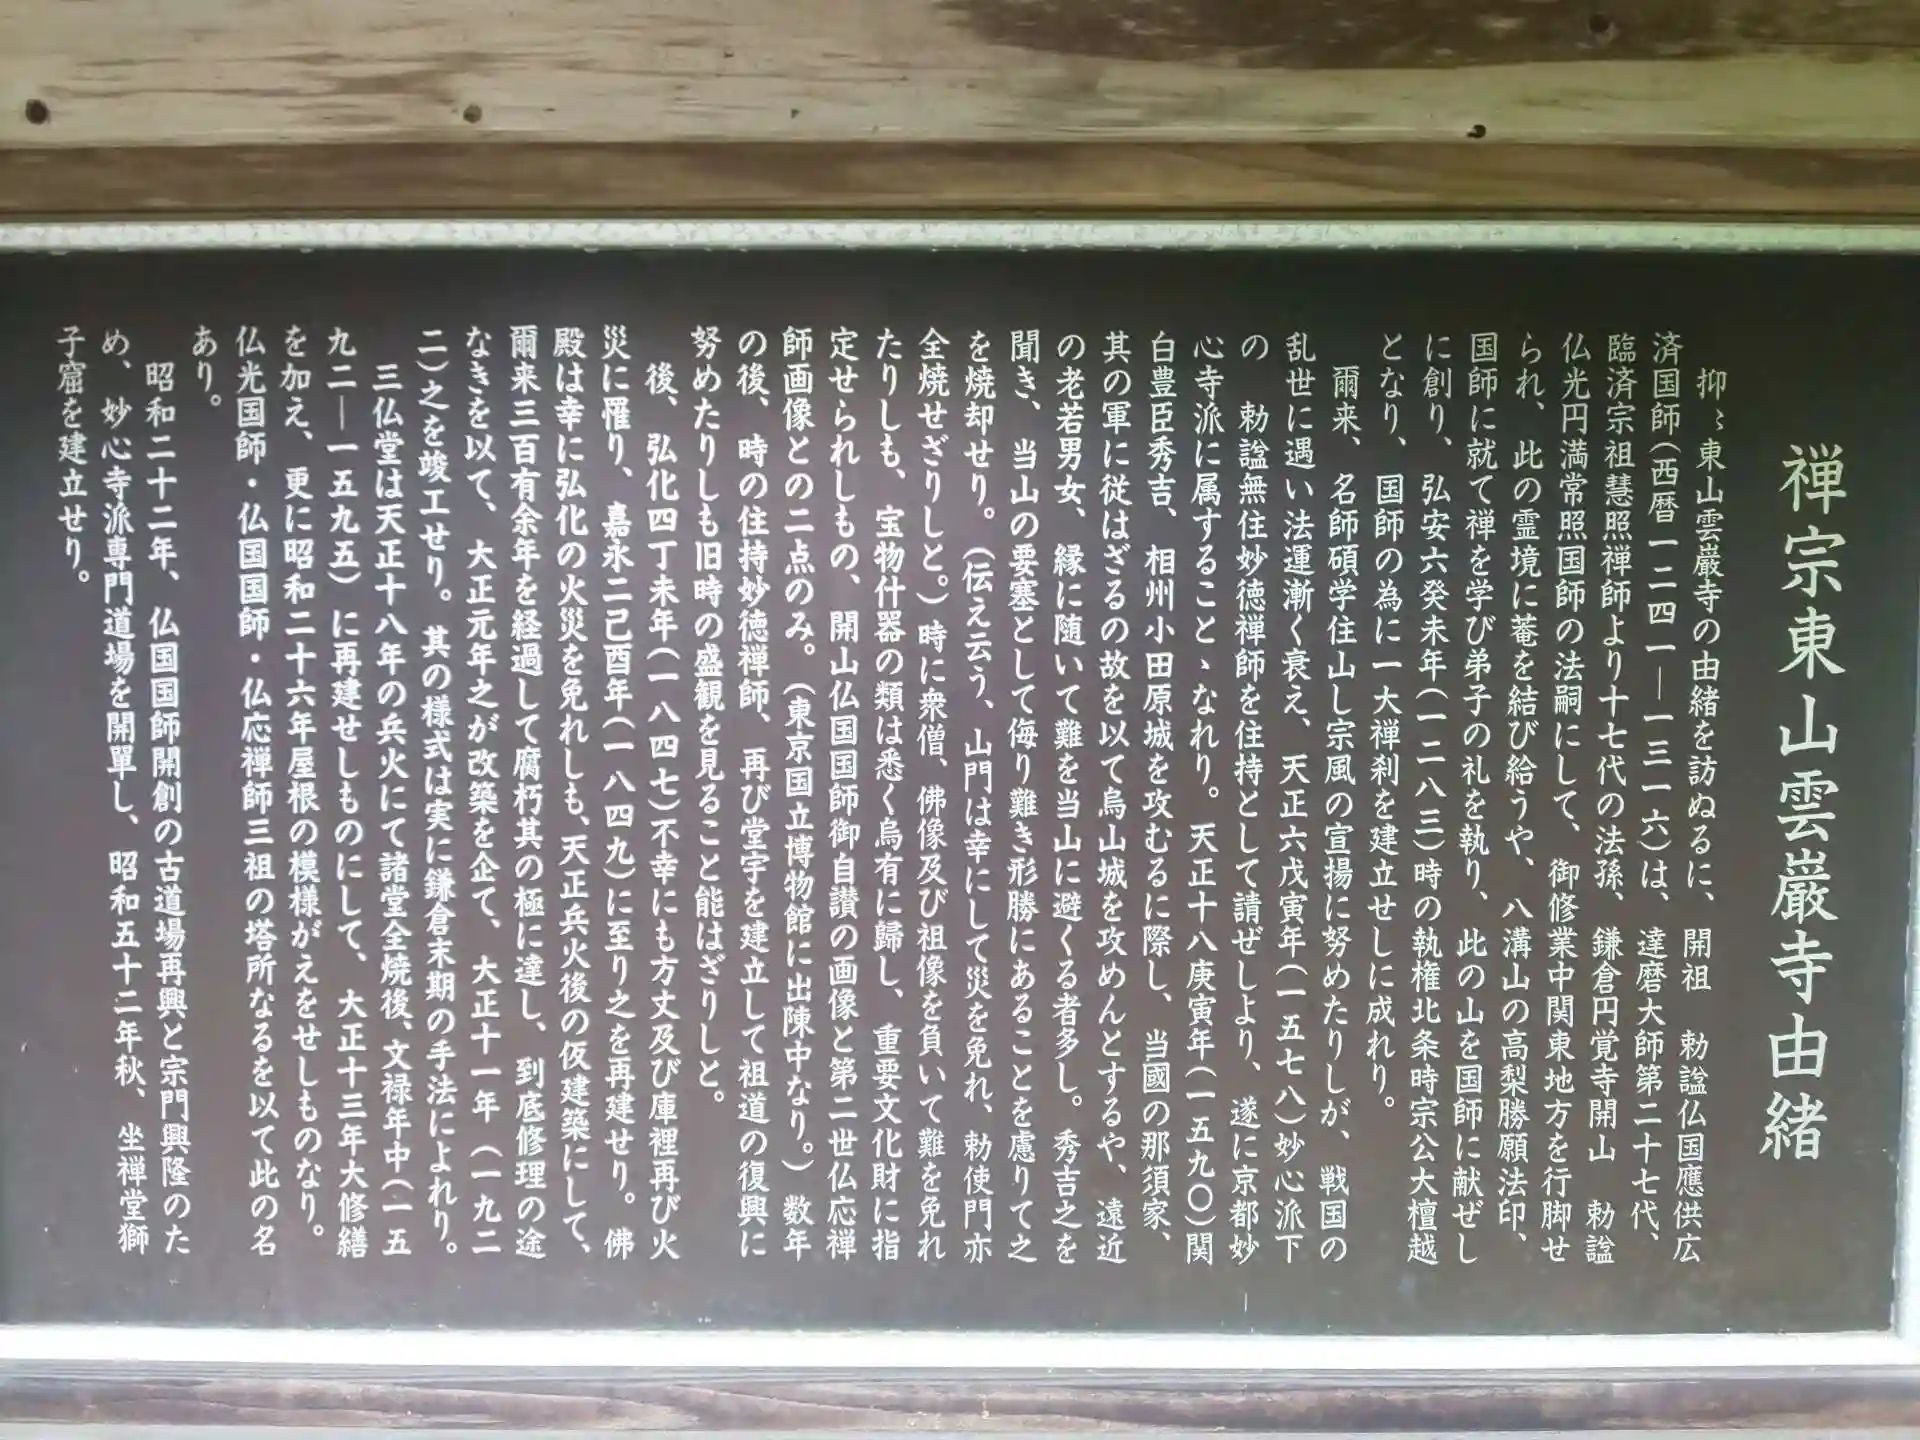 禅宗東山雲巌寺由緒
抑〻東山雲巌寺の由緒を訪ぬるに、開祖　勅諡仏国應供広
済国師(西暦一二四一―一三一六)は、達磨大師第二十七代、
臨済宗祖慧照禅師より十七代の法孫、鎌倉円覚寺開山　勅諡
仏光円満常照国師の法嗣にして、御修業中関東地方を行脚せ
られ、此の霊境に菴を結び給うや、八溝山の高梨勝願法印、
国師に就て禅を学び弟子の礼を執り、此の山を国師に献ぜし
に創り、弘安六癸未年(一二八三)時の執権北条時宗公大檀越
となり、国師の為に一大禅刹を建立せしに成れり。
爾来、名師碩学住山し宗風の宣揚に努めたりしが、戦国の
乱世に遇い法運漸く衰え、天正六戊寅年(一五七八)妙心派下
の　勅諡無住妙徳禅師を住持として請ぜしより、遂に京都妙
心寺派に属すること〻なれり。天正十八庚寅年(一五九〇)関
白豊臣秀吉、相州小田原城を攻むるに際し、当國の那須家、
其の軍に従はざるの故を以て烏山城を攻めんとするや、遠近
の老若男女、縁に随いて難を当山に避くる者多し。秀吉之を
聞き、当山の要塞として侮り難き形勝にあることを慮りて之
を焼却せり。(伝え云う、山門は幸にして災を免れ、勅使門亦
全焼せざりしと。)時に衆僧、佛像及び祖像を負いて難を免れ
たりしも、宝物什器の類は悉く烏有に歸し、重要文化財に指
定せられしもの、開山仏国国師御自讃の画像と第二世仏応禅
師画像との二点のみ。(東京国立博物館に出陳中なり。)数年
の後、時の住持妙徳禅師、再び堂宇を建立して祖道の復興に
努めたりしも旧時の盛観を見ること能はざりしと。
後、弘化四丁未年(一八四七)不幸にも方丈及び庫裡再び火
災に罹り、嘉永二己酉年(一八四九)に至り之を再建せり。佛
殿は幸に弘化の火災を免れしも、天正兵火後の仮建築にして、
爾来三百有余年を経過して腐朽其の極に達し、到底修理の途
なきを以て、大正元年之が改築を企て、大正十一年(一九二
二)之を竣工せり。其の様式は実に鎌倉末期の手法によれり。
三仏堂は天正十八年の兵火にて諸堂全焼後、文禄年中(一五
九二―一五九五)に再建せしものにして、大正十三年大修繕
を加え、更に昭和二十六年屋根の模様がえをせしものなり。
仏光国師・仏国国師・仏応禅師三祖の塔所なるを以て此の名
あり。
昭和二十二年、仏国国師開創の古道場再興と宗門興隆のた
め、妙心寺派専門道場を開單し、昭和五十二年秋、坐禅堂獅
子窟を建立せり。